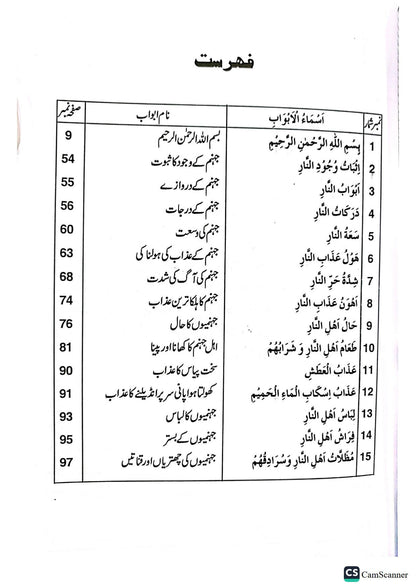 فہرست
نمبر شمار اَسْمَاءُ الْاَبْوَابِ نام ابواب صفحہ نمبر
1 بِسْمِ اللّٰهِ الرَّحْمٰنِ الرَّحِيْمِ بسم اللہ الرحمٰن الرحیم 9
2 اِثْبَاتُ وُجُوْدِ النَّارِ جہنم کے وجود کا ثبوت 54
3 اَبْوَابُ النَّارِ جہنم کے دروازے 55
4 دَرَكَاتُ النَّارِ جہنم کے درجات 56
5 سَعَةُ النَّارِ جہنم کی وسعت 60
6 هَوْلُ عَذَابِ النَّارِ جہنم کے عذاب کی ہولناکی 63
7 شِدَّةُ حَرِّ النَّارِ جہنم کی آگ کی شدت 68
8 اَهْوَنُ عَذَابِ النَّارِ جہنم کا ہلکا ترین عذاب 74
9 حَالُ اَهْلِ النَّارِ جہنمیوں کا حال 76
10 طَعَامُ اَهْلِ النَّارِ وَ شَرَابُهُمْ اہل جہنم کا کھانا اور پینا 81
11 عَذَابُ الْعَطَشِ سخت پیاس کا عذاب 90
12 عَذَابُ اِسْكَابِ الْمَاءِ الْحَمِيْمِ کھولتا ہوا پانی سر پر انڈیلنے کا عذاب 91
13 لِبَاسُ اَهْلِ النَّارِ جہنمیوں کا لباس 93
14 فِرَاشُ اَهْلِ النَّارِ جہنمیوں کے بستر 95
15 مُظَلَّاتُ اَهْلِ النَّارِ وَ سُرَادِقُهُمْ جہنمیوں کی چھتریاں اور قناتیں 97
CS CamScanner